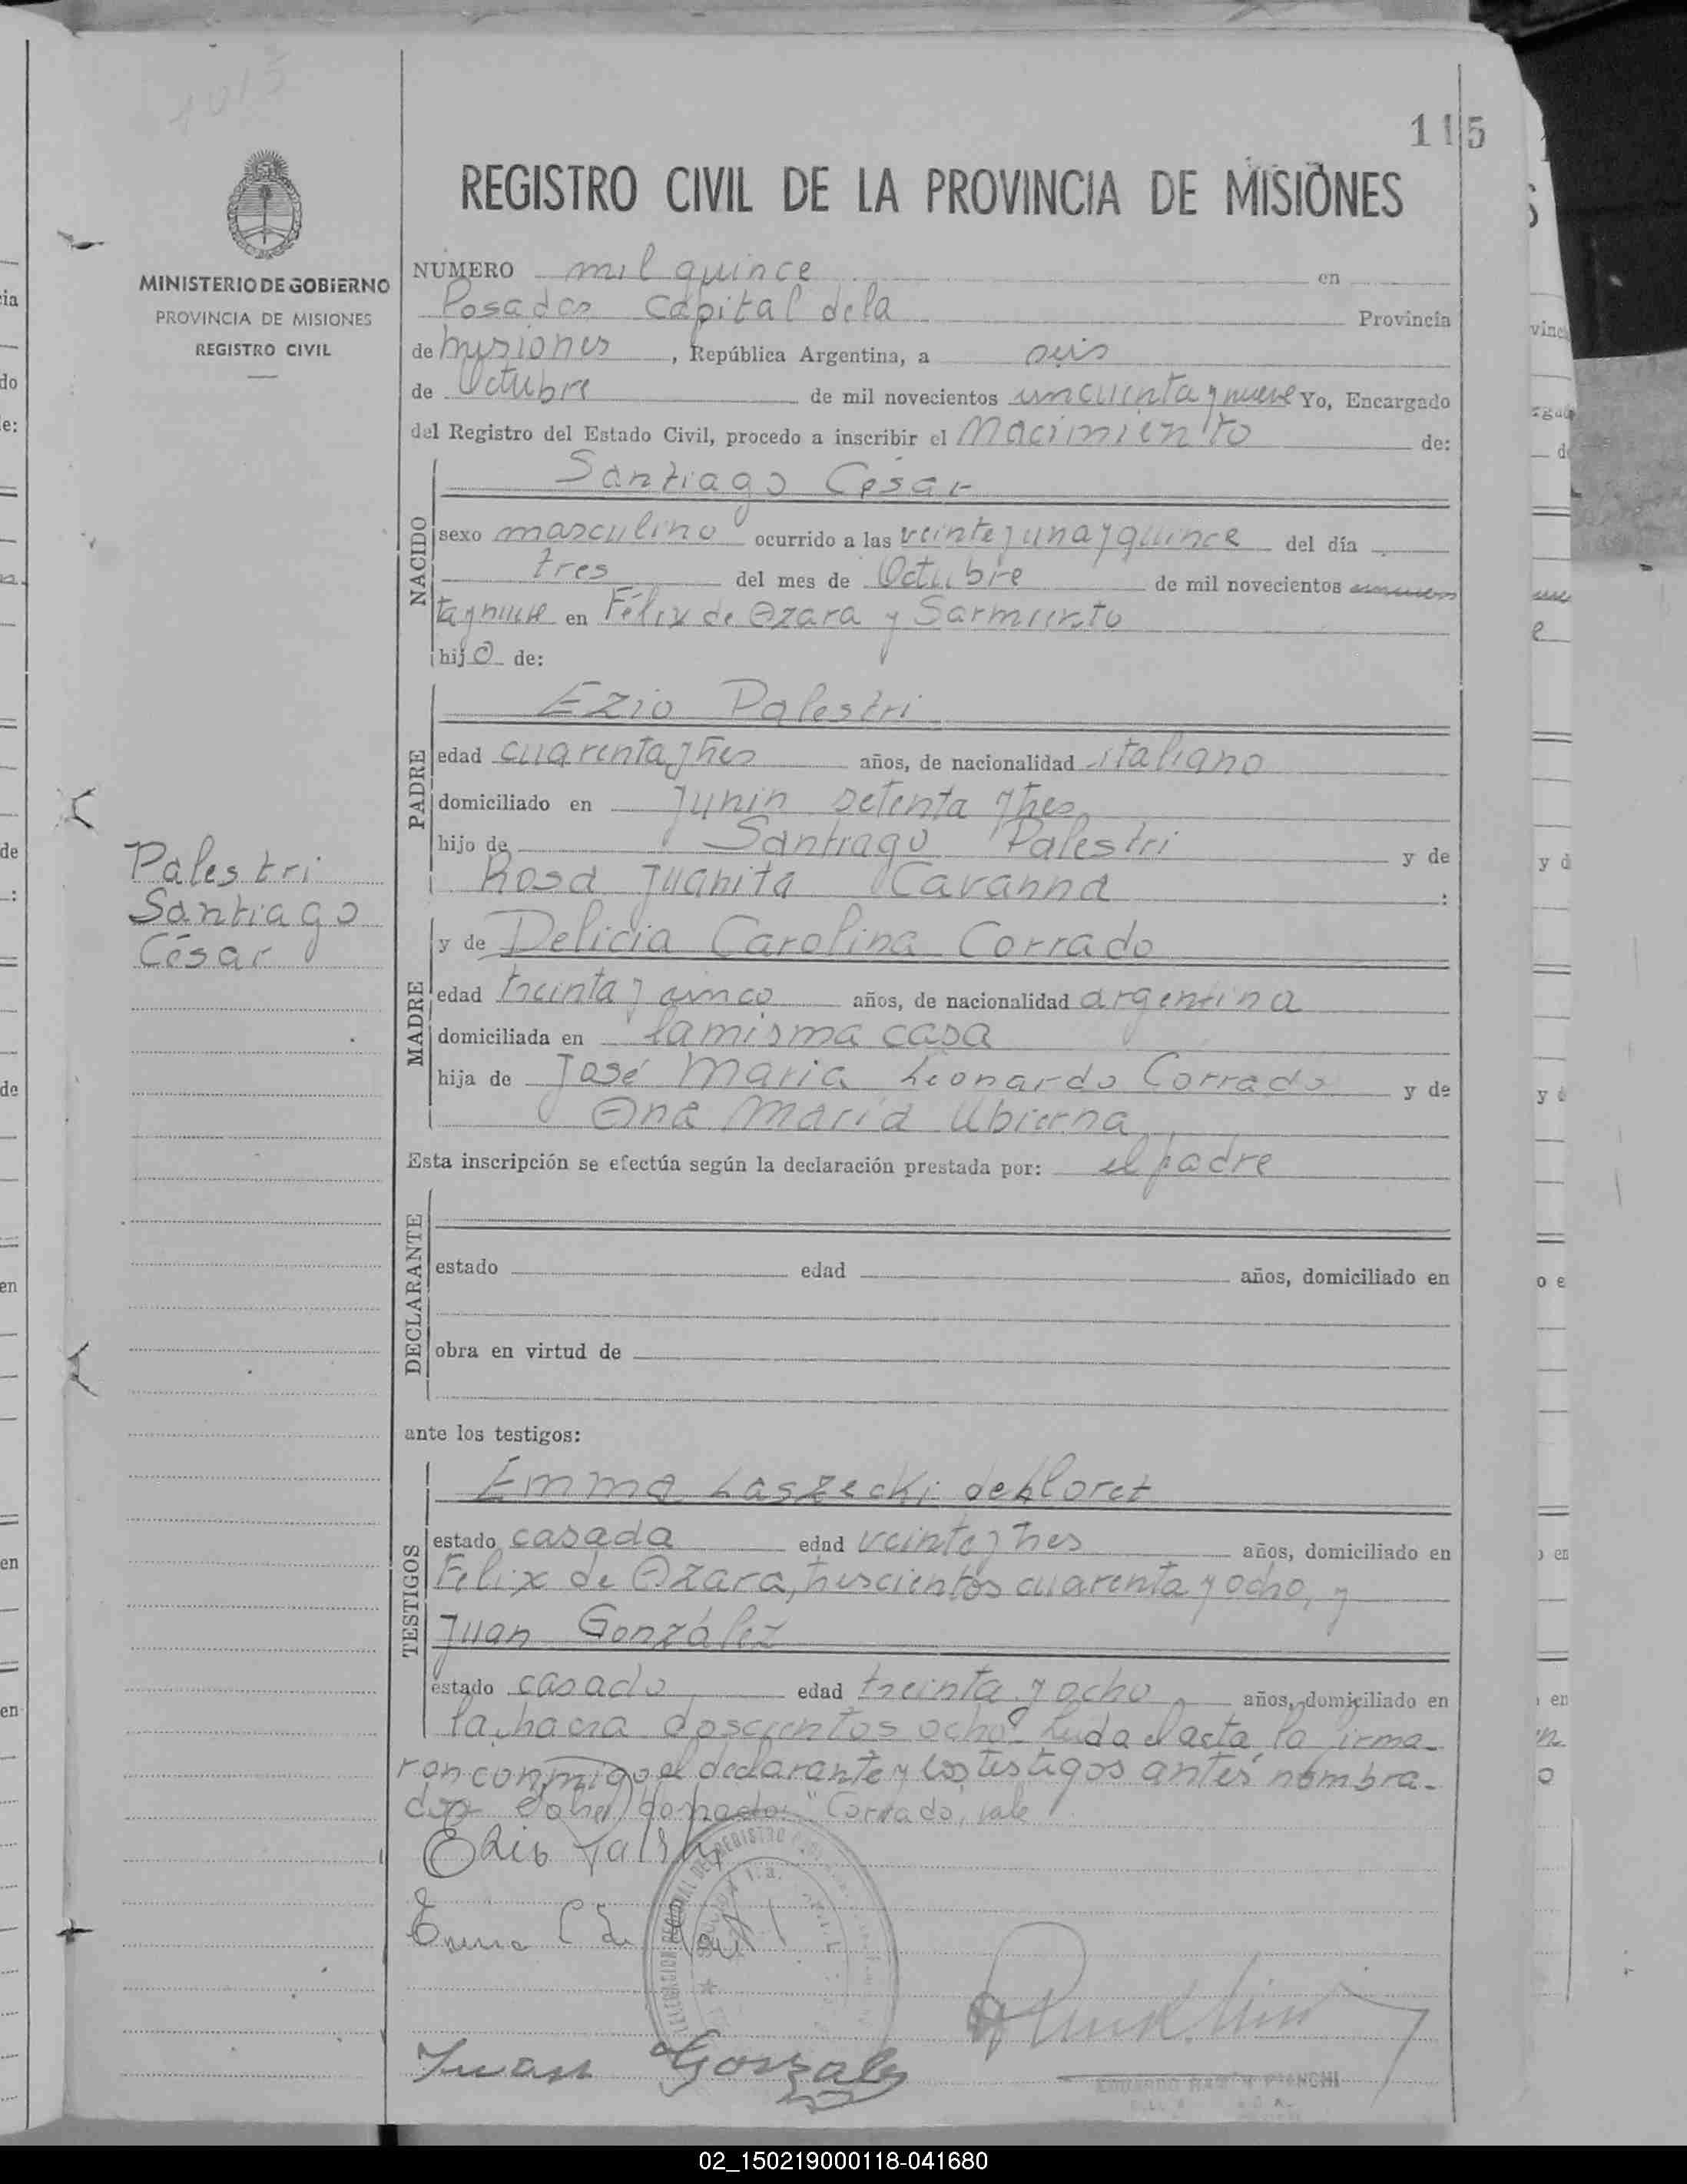 1015
115
REGISTRO CIVIL DE LA PROVINCIA DE MISIONES
MINISTERIO DE GOBIERNO
PROVINCIA DE MISIONES
REGISTRO CIVIL
NUMERO mil quince en
Posadas Capital de la Provincia
de Misiones, República Argentina, a seis
de Octubre de mil novecientos cincuenta y nueve Yo, Encargado
del Registro del Estado Civil, procedo a inscribir el Nacimiento de:
NACIDO
Santiago César
sexo masculino ocurrido a las veinte y una y quince del día
tres del mes de Octubre de mil novecientos cincuen
ta y nueve en Félix de Azara y Sarmiento
hijo de:
PADRE
Ezio Palestri
edad cuarenta y tres años, de nacionalidad italiano
domiciliado en Junin setenta y tres
hijo de Santiago Palestri y de
Rosa Juanita Cavanna :
Palestri
Santiago
César
MADRE
y de Delicia Carolina Corrado
edad treinta y cinco años, de nacionalidad argentina
domiciliada en la misma casa
hija de José Maria Leonardo Corrado y de
Ana María Ubierna
Esta inscripción se efectúa según la declaración prestada por: el padre
DECLARANTE
estado edad años, domiciliado en
obra en virtud de
ante los testigos:
TESTIGOS
Emma Laszecki de Lloret
estado casada edad veinte y tres años, domiciliado en
Felix de Azara, trescientos cuarenta y ocho, y
Juan González
estado casado edad treinta y ocho años, domiciliado en
la chacra doscientos ocho. Leida el acta la firma-
ron conmigo el declarante y los testigos antes nombra-
dos "Corrado, vale
Juan Gonzalez
02_150219000118-041680